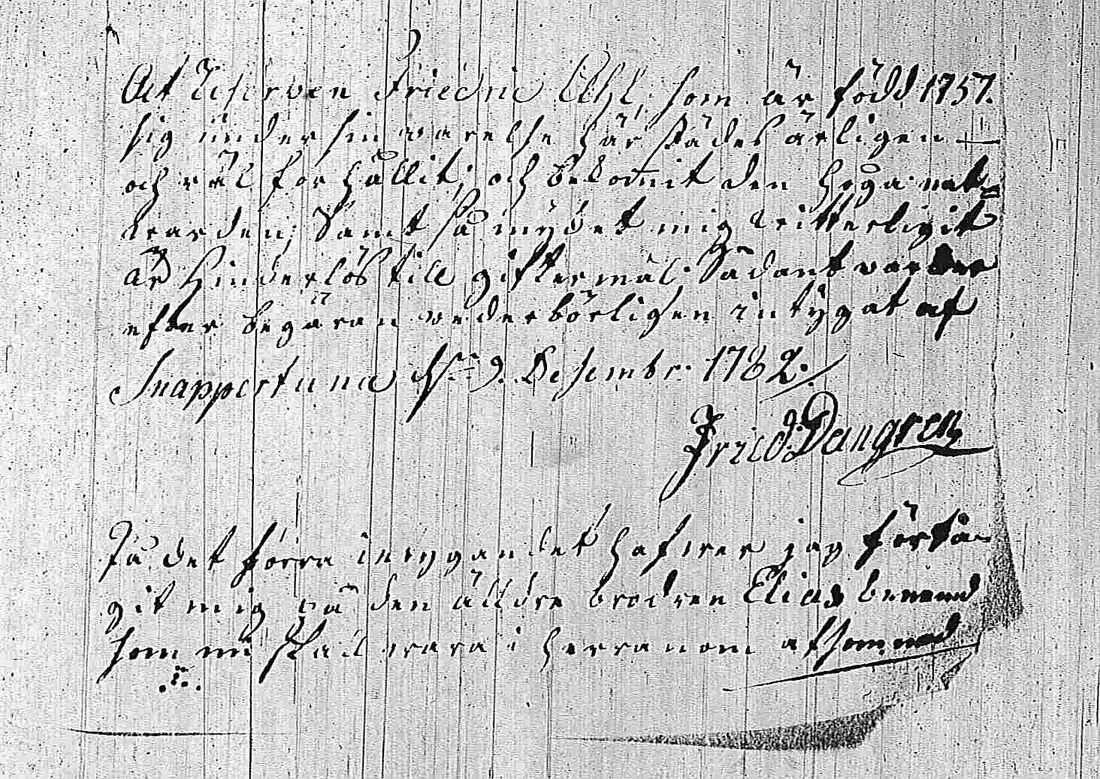 Att Reserven Friedric Ahl, som är född 1757.
sig under sin warelse här städes ärligen
och väl förhållit; och bekommit den höga natt-
warden; Samt så mycket mig witterligit
är Hinderlös till giftermål; Sådant warder
efter begäran wederbörligen intygat af
Snappertuna d. 9. Desembr. 1782.
Fried: Dangren
På det förra intygandet hafwer jag förta-
git mig på den älldre brodren Elias benemd
som nu skall wara i Herranom afsomnad